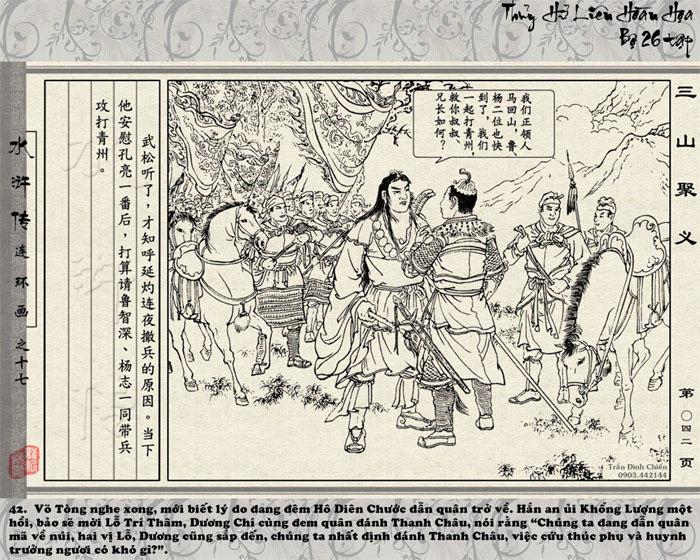 Thủy Hử Liên Hoàn Họa
Bộ 26 tập
三山聚义
第〇四二页
我们正领人
马回山，鲁
杨二位也快
到了，我们
一起打青州，
救你叔叔、
兄长如何？
武松听了，才知呼延灼连夜撤兵的原因。当下
他安慰孔亮一番后，打算请鲁智深、杨志一同带兵
攻打青州。
水浒传连环画之十七
Trần Đình Chiến
0903.442144
42. Võ Tòng nghe xong, mới biết lý do đang đêm Hô Diên Chước dẫn quân trở về. Hắn an ủi Khổng Lượng một
hồi, bảo sẽ mời Lỗ Trí Thâm, Dương Chí cùng đem quân đánh Thanh Châu, nói rằng “Chúng ta đang dẫn quân
mã về núi, hai vị Lỗ, Dương cũng sắp đến, chúng ta nhất định đánh Thanh Châu, việc cứu thúc phụ và huynh
trưởng ngươi có khó gì?”.